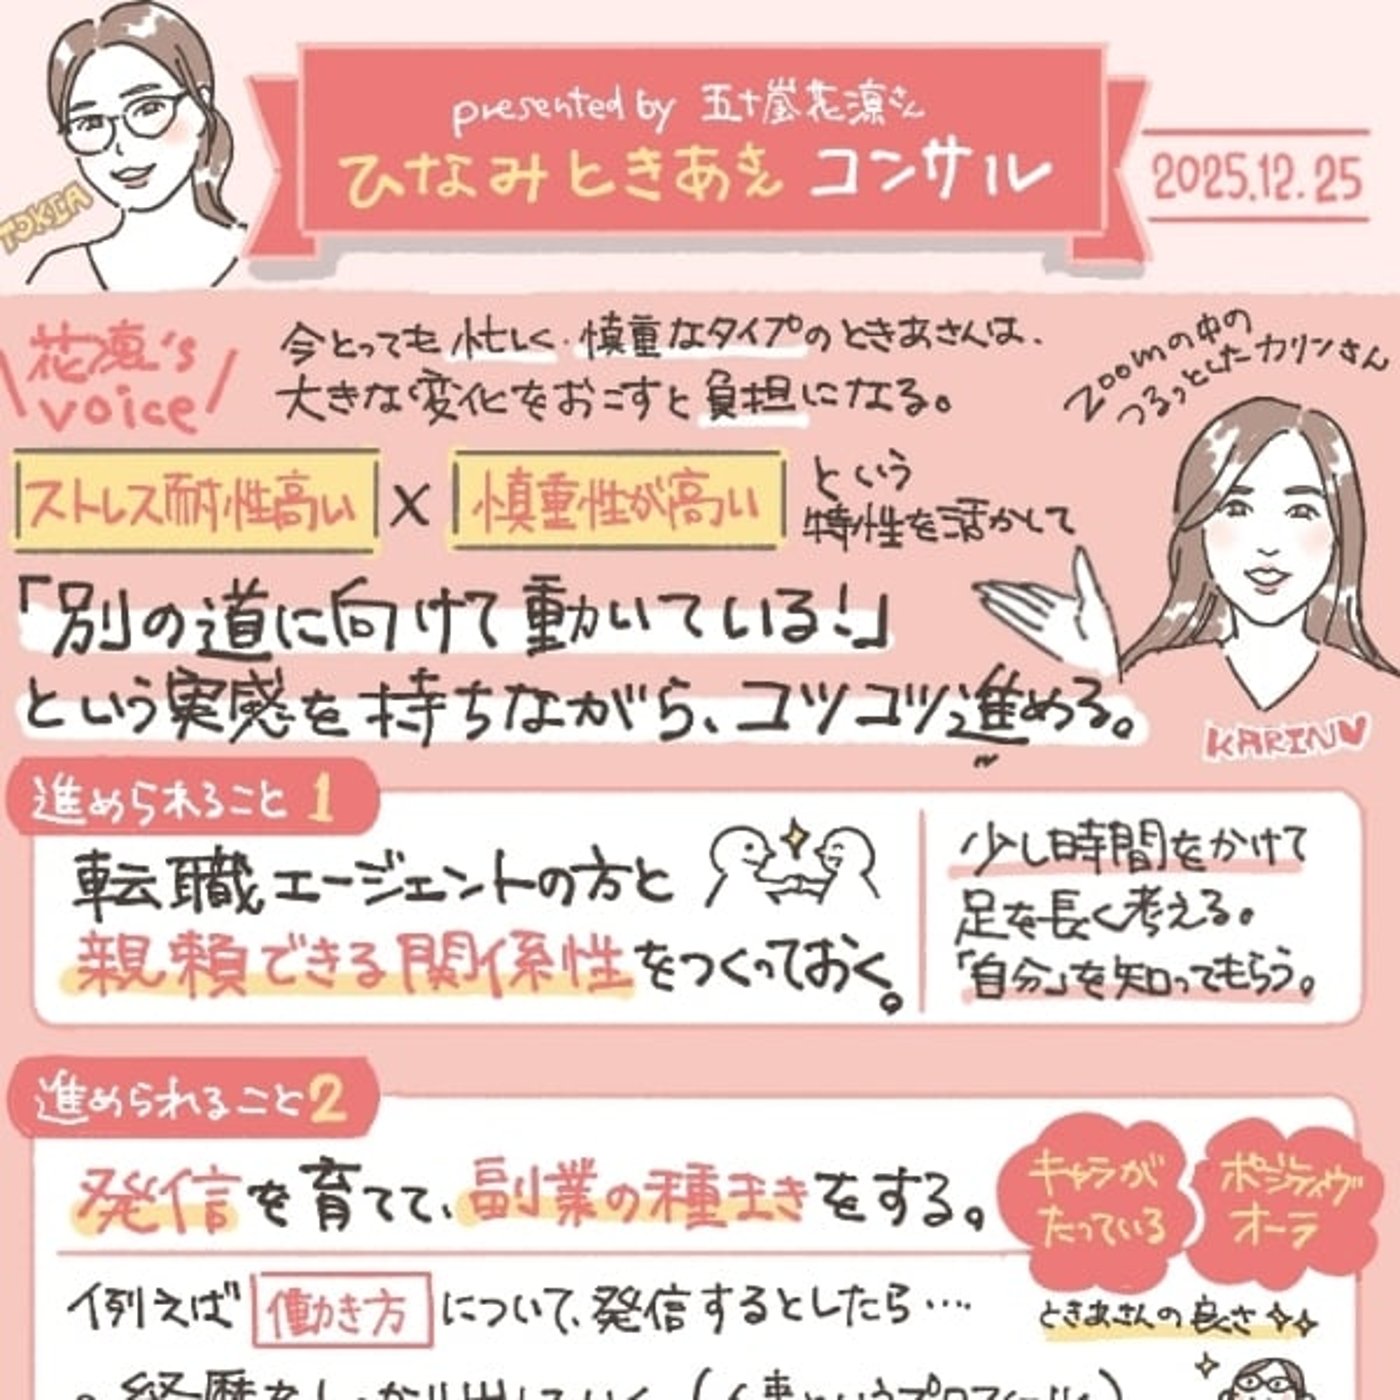 presented by 五十嵐花凛さん
ひなみときあさん コンサル
2025.12.25
TOKIA
花凛's voice
今とっても忙しく、慎重なタイプのときあさんは、
大きな変化をおこすと負担になる。
Zoomの中の
つるっとしたカリンさん
ストレス耐性高い × 慎重性が高い という
特性を活かして
「別の道に向けて動いている!」
という実感を持ちながら、コツコツ進める。
KARIN♥
進められること 1
転職エージェントの方と
親頼できる関係性をつくっておく。
少し時間をかけて
足を長く考える。
「自分」を知ってもらう。
進められること2
発信を育てて、副業の種まきをする。
キャラが
たっている
ポジティヴ
オーラ
例えば 働き方 について、発信するとしたら‥‥
ときあさんの良さ